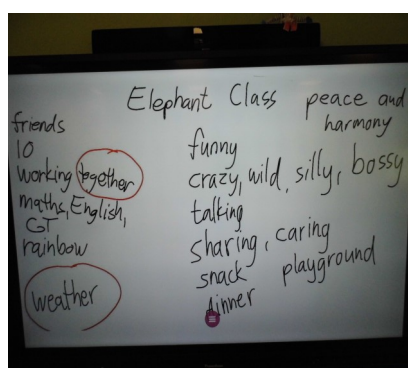 Elephant Class
peace and
harmony
friends
10
working together
maths, English,
GT
rainbow
weather
funny
crazy, wild, silly, bossy
talking
sharing, caring
snack playground
dinner